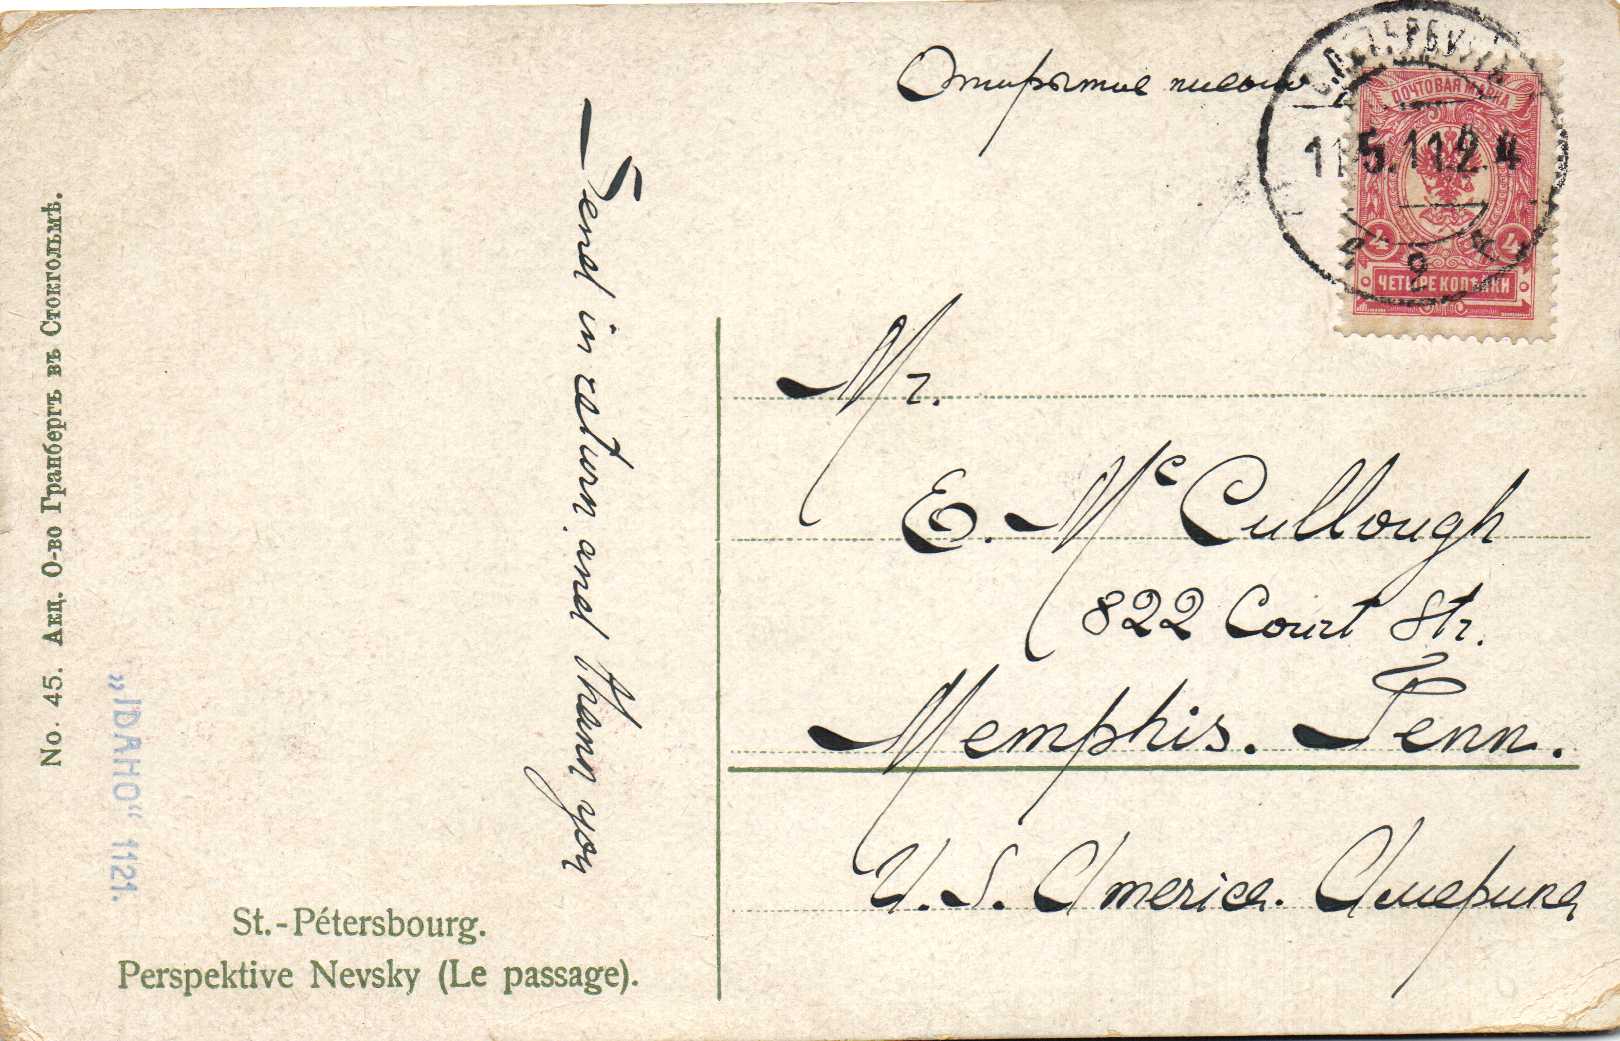 Открытое письмо
С.ПЕТЕРБУРГЪ
11.5.11.2.4
ПОЧТОВАЯ МАРКА
4 4
ЧЕТЫРЕ КОПѢЙКИ
Mr.
E. McCullough
822 Court Str.
Memphis. Tenn.
U.S. America. Америка
Send in return and thank you
No. 45. Акц. О-во Гранбергъ въ Стокгольмѣ.
„IDAHO“ 1121.
St.-Pétersbourg.
Perspektive Nevsky (Le passage).